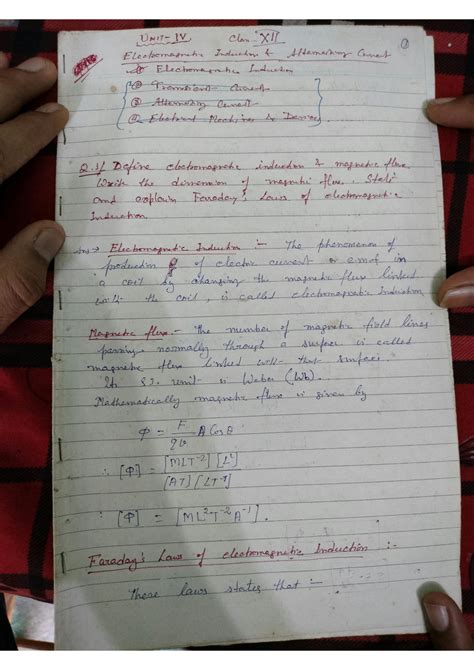 UNIT-IV Class XII
1
Electromagnetic Induction & Alternating Current
Electromagnetic Induction
② Transient Current
③ Alternating Current
④ Electrical Machines & Devices.
Q.1/ Define electromagnetic induction & magnetic flux.
Write the dimension of magnetic flux. State
and explain Faraday's Laws of electromagnetic
Induction
Ans → Electromagnetic Induction :- The phenomenon of
production of electric current or emf in
a coil by changing the magnetic flux linked
with the coil, is called electromagnetic induction
Magnetic flux :- The number of magnetic field lines
passing normally through a surface is called
magnetic flux linked with that surface.
Its S.I. unit is Weber (Wb).
Mathematically magnetic flux is given by
Φ = F/qv A Cos θ
∴ [Φ] = [MLT⁻²] [L²] / [AT] [LT⁻¹]
∴ [Φ] = [ML²T⁻²A⁻¹].
Faraday's Laws of electromagnetic Induction :-
These laws states that :-